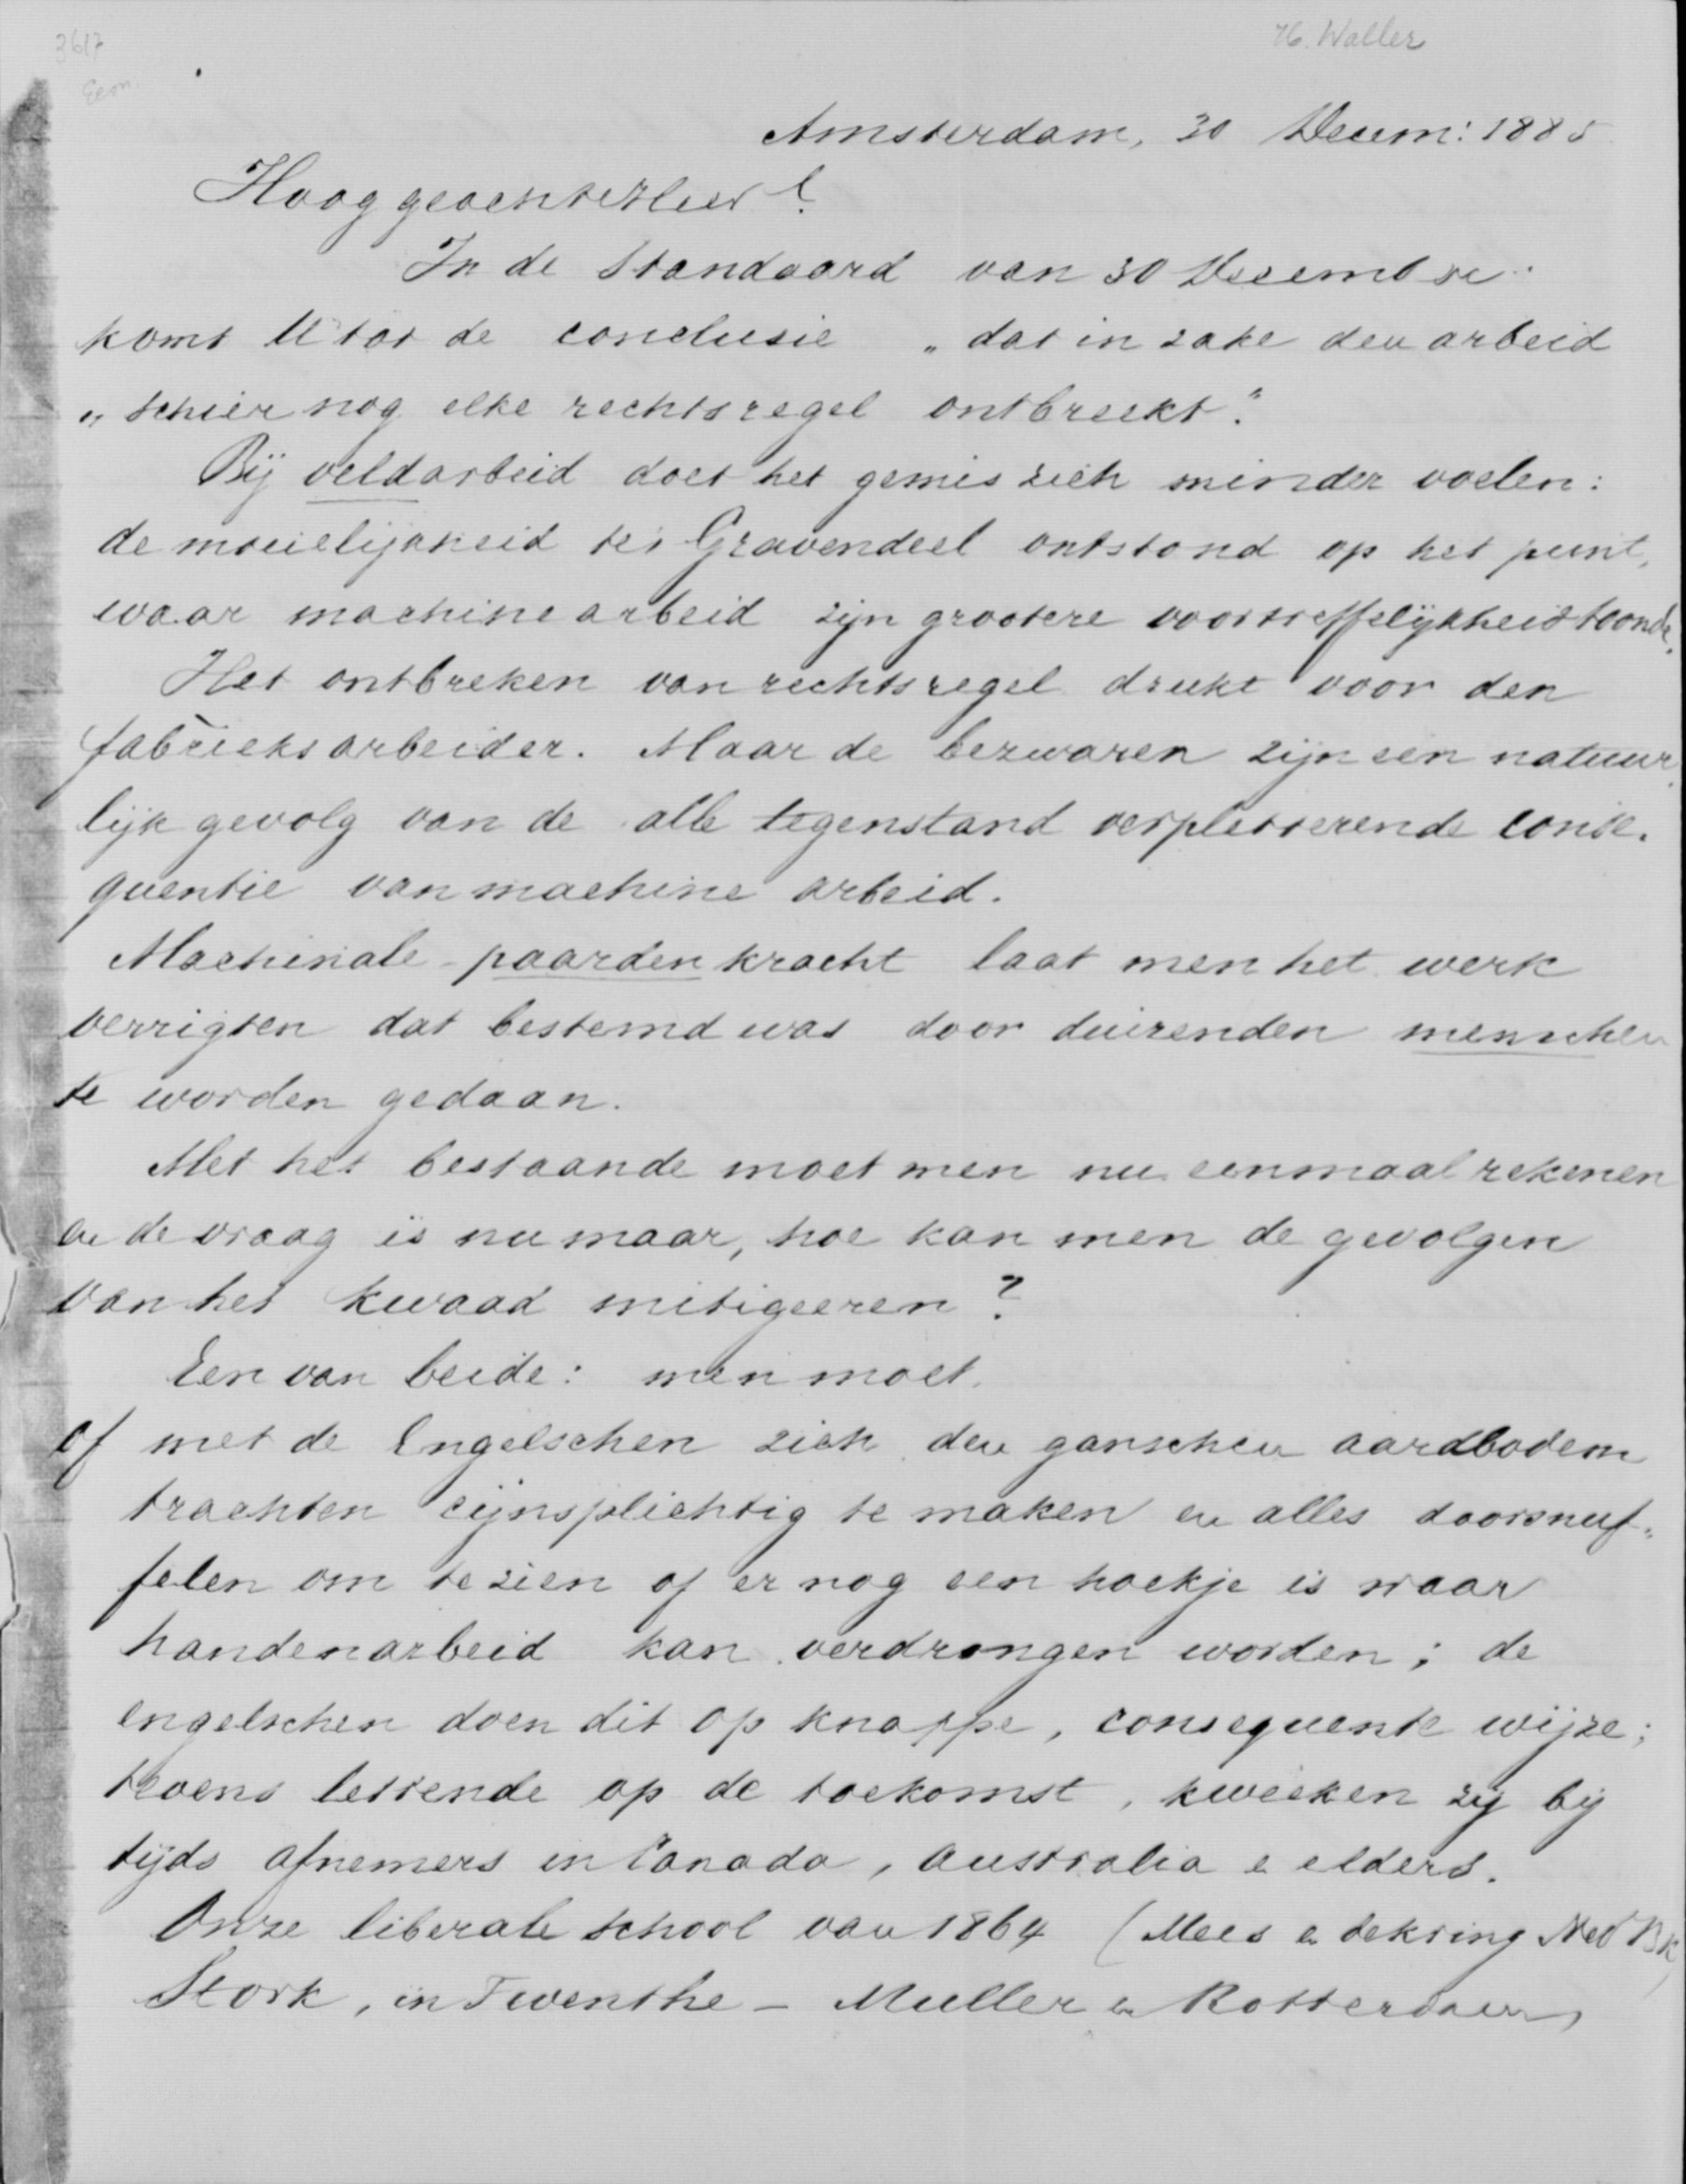 3617
H. Waller
Eem.
Amsterdam, 30 Decem: 1885
Hooggeachte Heer!
In de Standaard van 30 December
komt U tot de conclusie „dat in zake den arbeid
„schier nog elke rechtsregel ontbreekt."
Bij veldarbeid doet het gemis zich minder voelen:
de moeielijkheid te 's Gravendeel ontstond op het punt,
waar machinearbeid zijn grootere voortreffelijkheid toonde.
Het ontbreken van rechtsregel drukt voor den
fabrieksarbeider. Maar de bezwaren zijn een natuur
lijk gevolg van de alle tegenstand verpletterende conse-
quentie van machine arbeid.
Machinale-paardenkracht laat men het werk
verrigten dat bestemd was door duizenden menschen
te worden gedaan.
Met het bestaande moet men nu eenmaal rekenen
en de vraag is nu maar, hoe kan men de gevolgen
van het kwaad mitigeeren?
Een van beide: men moet
of met de Engelschen zich den ganschen aardbodem
trachten cijnsplichtig te maken en alles doorsnuf-
felen om te zien of er nog een hoekje is waar
handenarbeid kan verdrongen worden; de
engelschen doen dit op knappe, consequente wijze;
tevens lettende op de toekomst, kweeken zij bij
tijds afnemers in Canada, Australia e elders.
Onze liberale school van 1864 (Mees e dekring Ned Bk,
Stork, in Twenthe - Muller in Rotterdam,